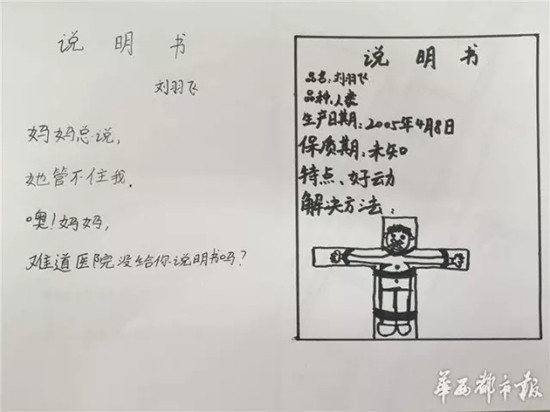 说明书
刘羽飞
妈妈总说，
她管不住我。
噢！妈妈，
难道医院没给你说明书吗？
说明书
品名：刘羽飞
品种：人类
生产日期：2005年4月8日
保质期：未知
特点、好动
解决方法：
华西都市报